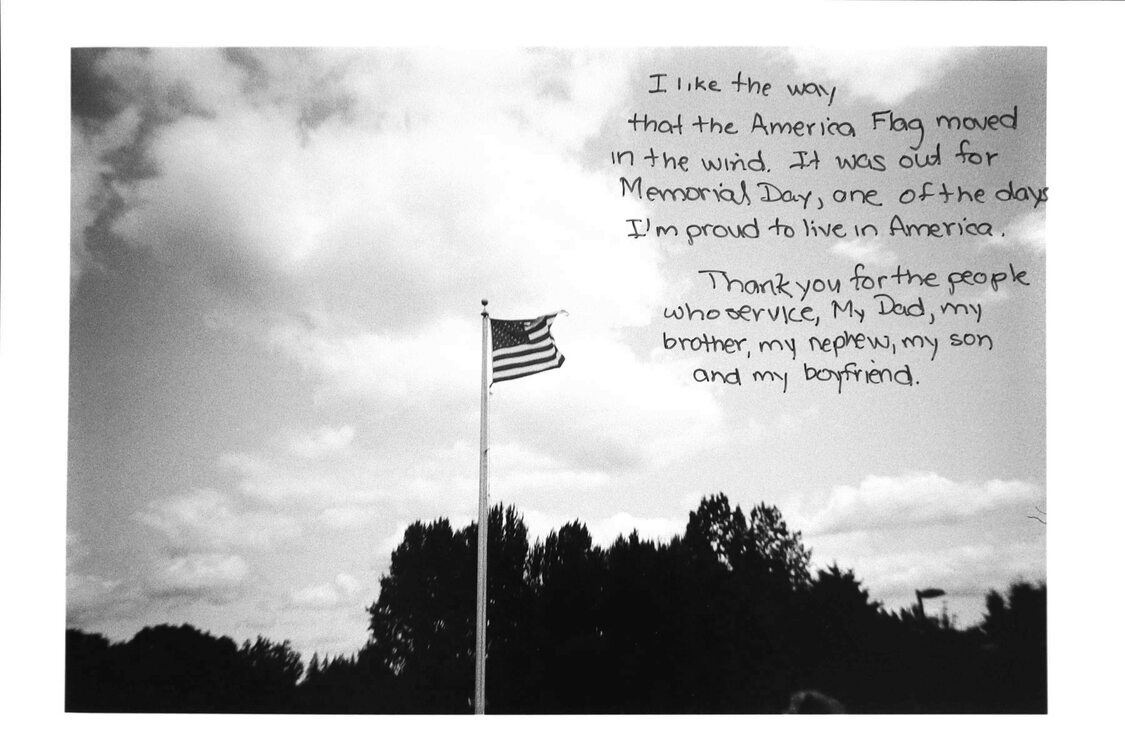 I like the way
that the America Flag moved
in the wind. It was out for
Memorial Day, one of the days
I'm proud to live in America.
Thank you for the people
who service, My Dad, my
brother, my nephew, my son
and my boyfriend.